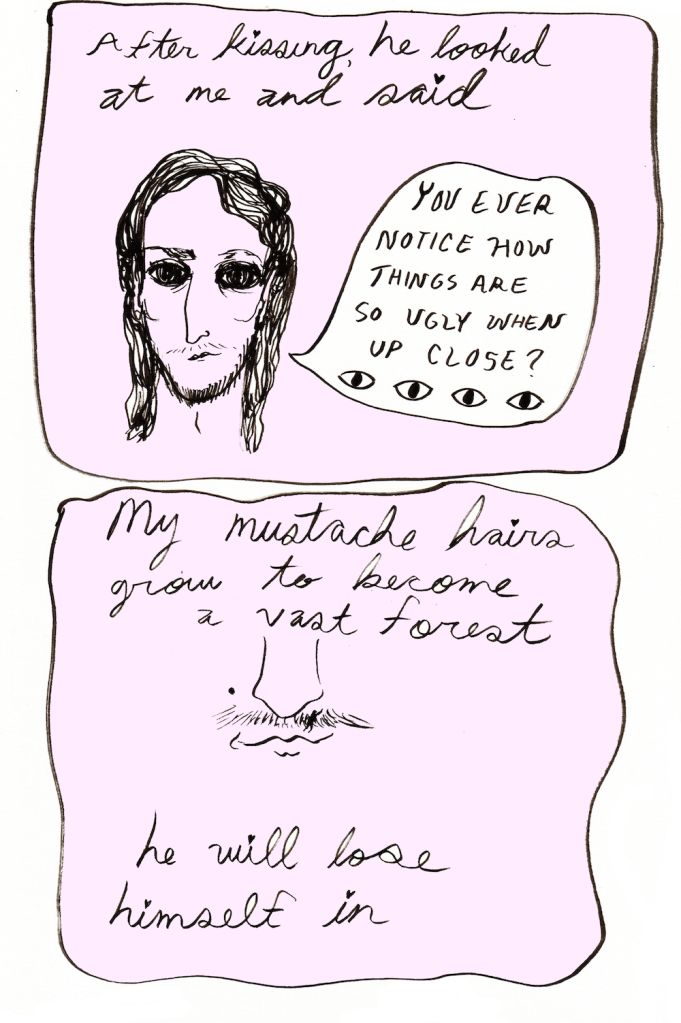 After kissing, he looked
at me and said
YOU EVER
NOTICE HOW
THINGS ARE
SO UGLY WHEN
UP CLOSE?
My mustache hairs
grow to become
a vast forest
he will lose
himself in